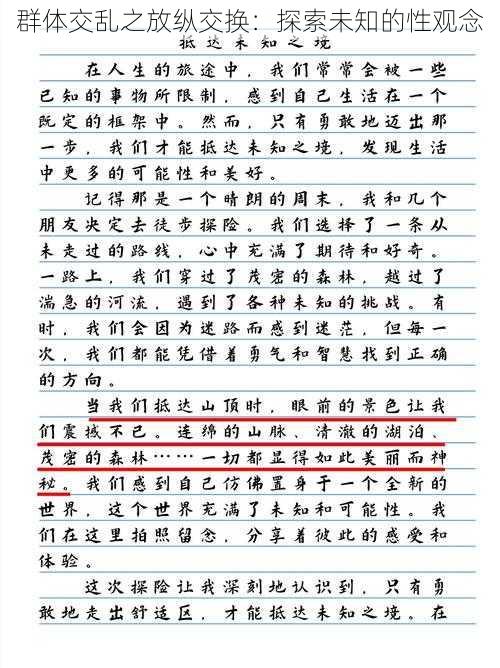 群体交乱之放纵交换：探索未知的性观念
抵达未知之境
在人生的旅途中，我们常常会被一些
已知的事物所限制，感到自己生活在一个
既定的框架中。然而，只有勇敢地迈出那
一步，我们才能抵达未知之境，发现生活
中更多的可能性和美好。
记得那是一个晴朗的周末，我和几个
朋友决定去徒步探险。我们选择了一条从
未走过的路线，心中充满了期待和好奇。
一路上，我们穿过了茂密的森林，越过了
湍急的河流，遇到了各种未知的挑战。有
时，我们会因为迷路而感到迷茫，但每一
次，我们都能凭借着勇气和智慧找到正确
的方向。
当我们抵达山顶时，眼前的景色让我
们震撼不已。连绵的山脉、清澈的湖泊、
茂密的森林……一切都显得如此美丽而神
秘。我们感到自己仿佛置身于一个全新的
世界，这个世界充满了未知和可能性。我
们在这里拍照留念，分享着彼此的感受和
体验。
这次探险让我深刻地认识到，只有勇
敢地走出舒适区，才能抵达未知之境。在